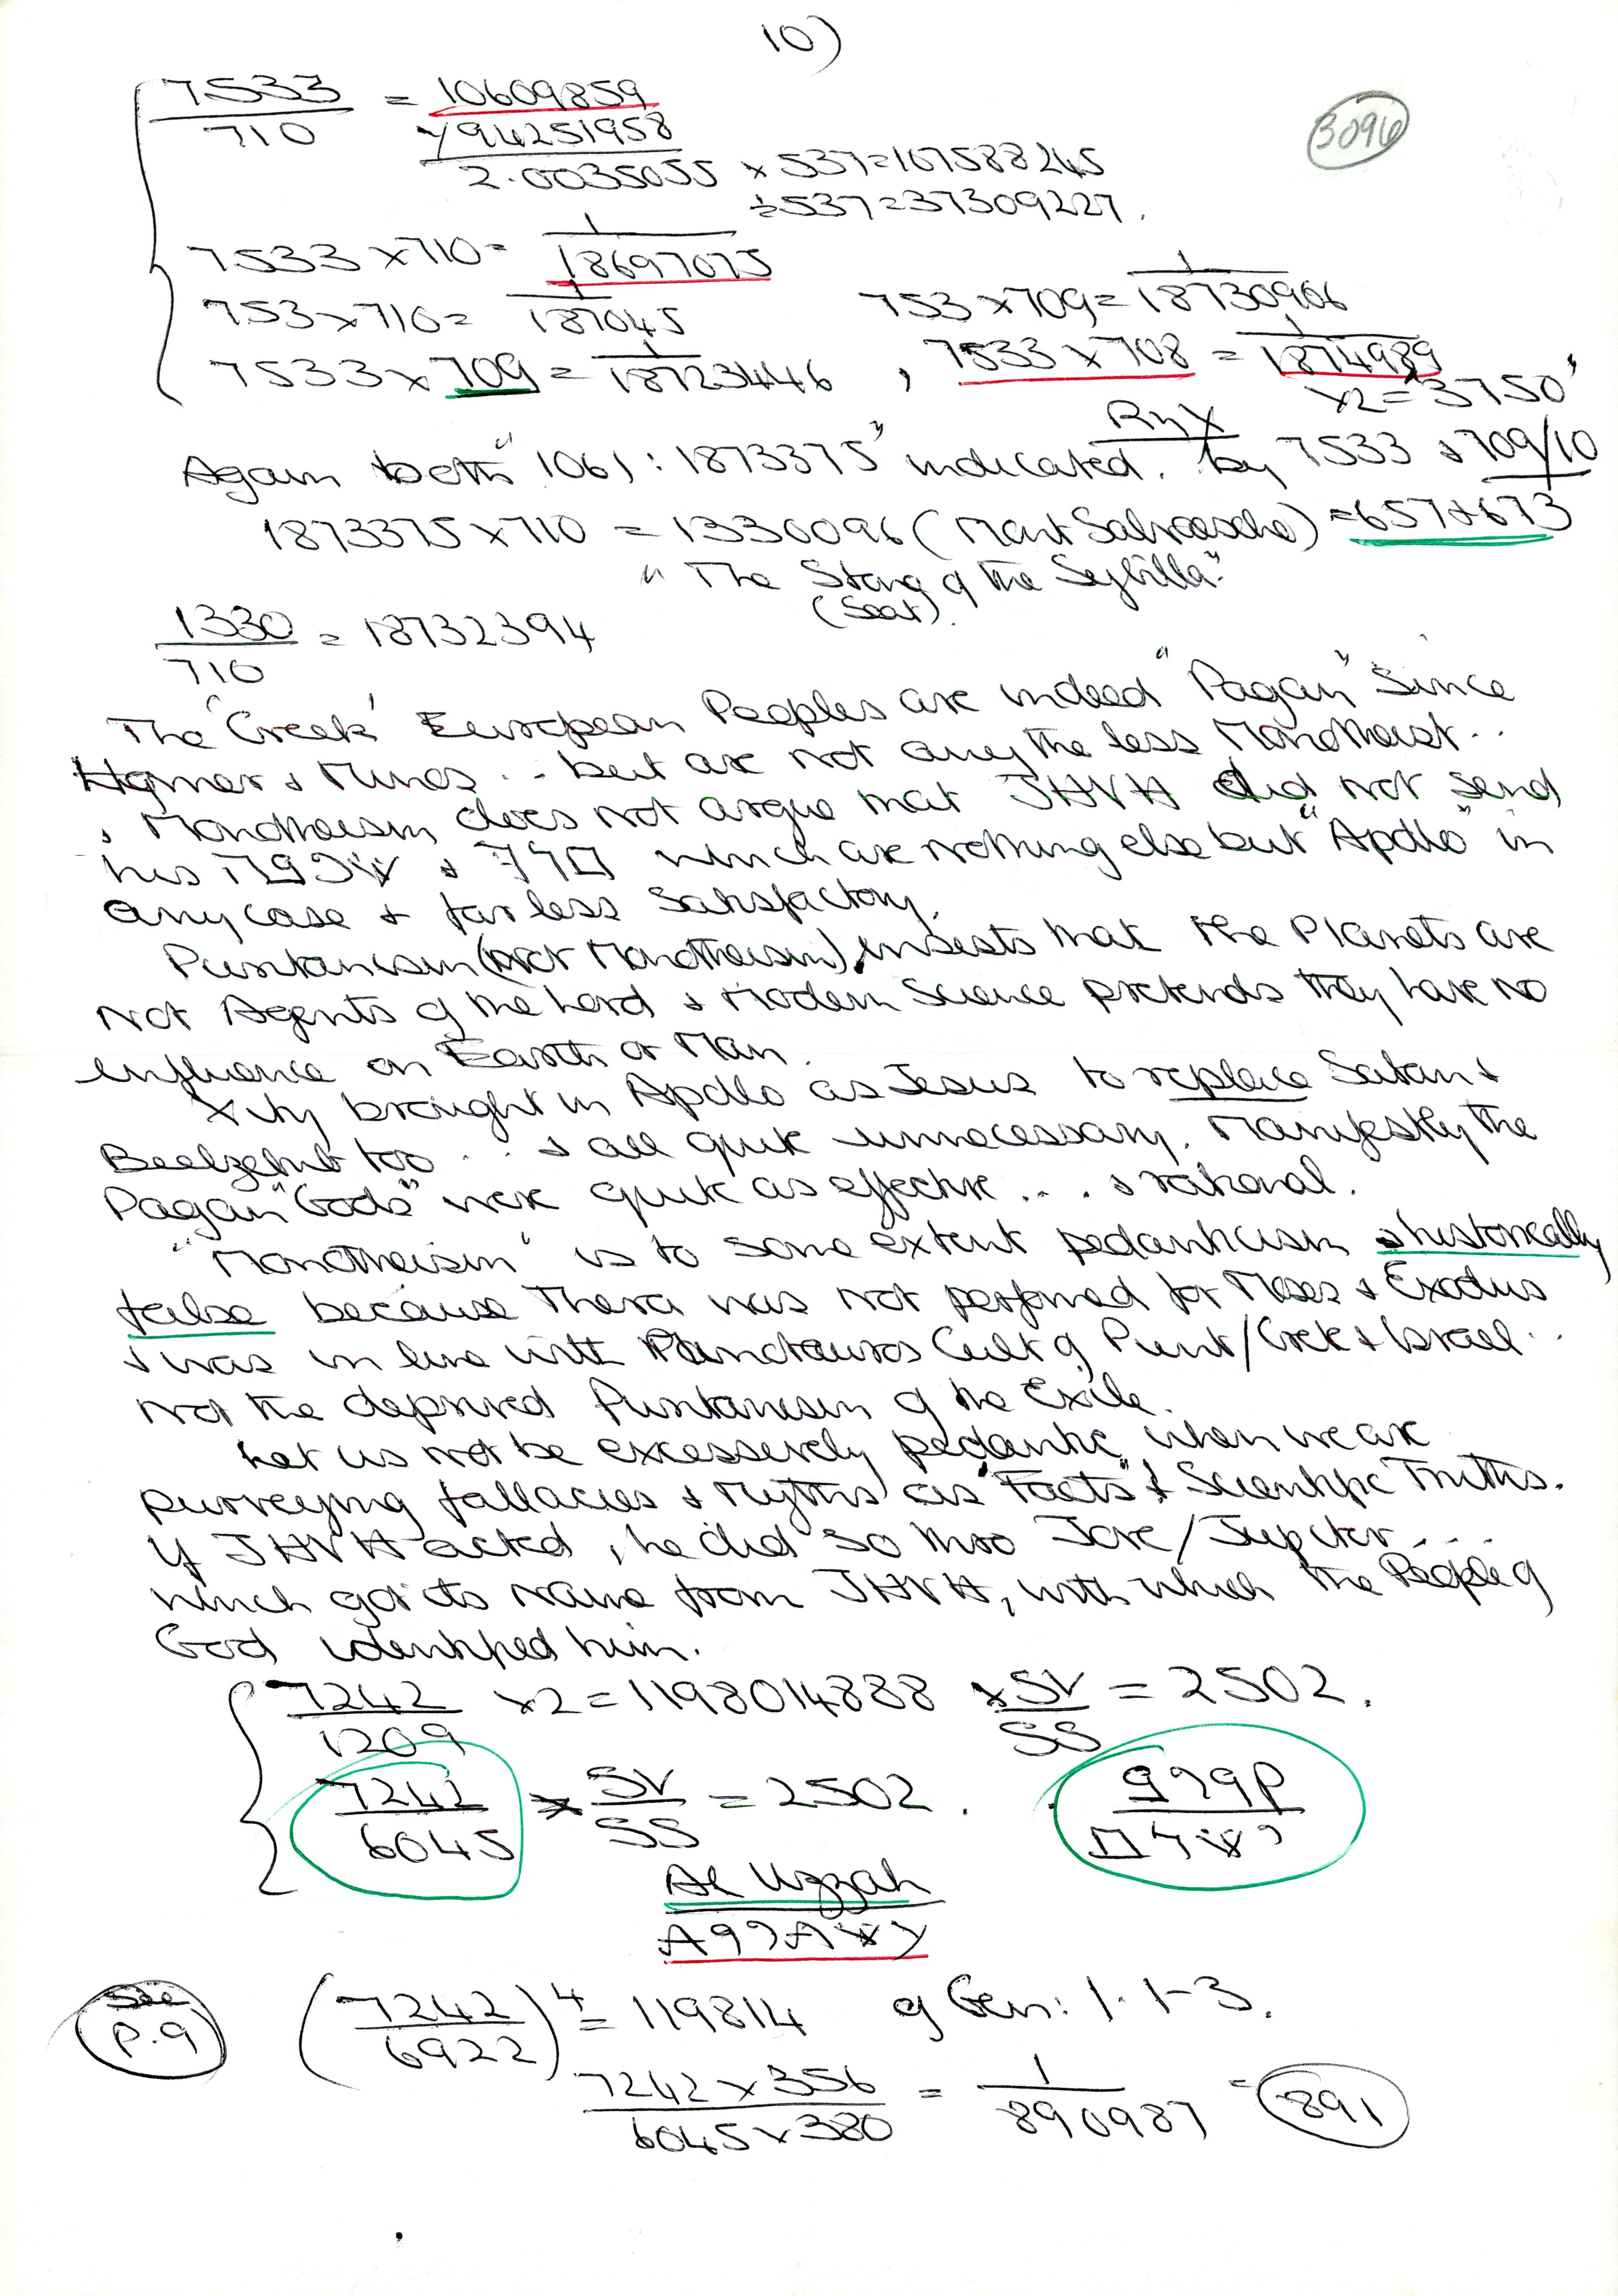 10)
3096
7533/710 = 10609859
√94251958
2.0035055 × 537 = 107588245
÷ 537 = 37309227.
7533 × 710 = 1/18697075
753 × 710 = 1/187045
753 × 709 = 1/18730906
7533 × 709 = 1/18723446 , 7533 × 708 = 1/1874989
×2 = 3750'
Again both "1061 : 1873375" indicated. by 7533 & 709/10
1873375 × 710 = 1330096 (Mont Salvaesche) = 657 & 673
"The Stone of the Sybilla."
(Seat).
1330/710 = 18732394
The 'Greek' European Peoples are indeed "Pagan" Since
Homer & Minos .. but are not any the less Monotheist ..
& Monotheism does not argue that JHVH did not send
his & which are nothing else but "Apollo" in
any case & far less Satisfactory.
Puritanism (not Monotheism) insists that the Planets are
Not Agents of the Lord & Modern Science pretends they have no
influence on Earth or Man.
Xity brought in Apollo as Jesus to replace Satan &
Beelzebub too ... & all quite unnecessary. Manifestly the
Pagan "Gods" were quite as effective ... & rational.
"Monotheism" is to some extent pedanticism & historically
false because Thera was not performed for Moses & Exodus
& was in line with Cult of Punt/Crete & Israel ..
Not the depraved Puritanism of the Exile.
Let us not be excessively pedantic when we are
purveying fallacies & Myths as "Facts" & Scientific Truths.
If JHVH acted, he did so thro Jove/Jupiter ...
which got its name from JHVH, with which the People of
God identified him.
7242/1209 ×2 = 1198014888 × SV/SS = 2502.
7242/6045 × SV/SS = 2502.
Al Uzzah
See
P.9
(7242/6922)⁴ = 119814 of Gen: 1. 1-3.
7242 × 356 / 6045 × 380 = 1/890987 = 891